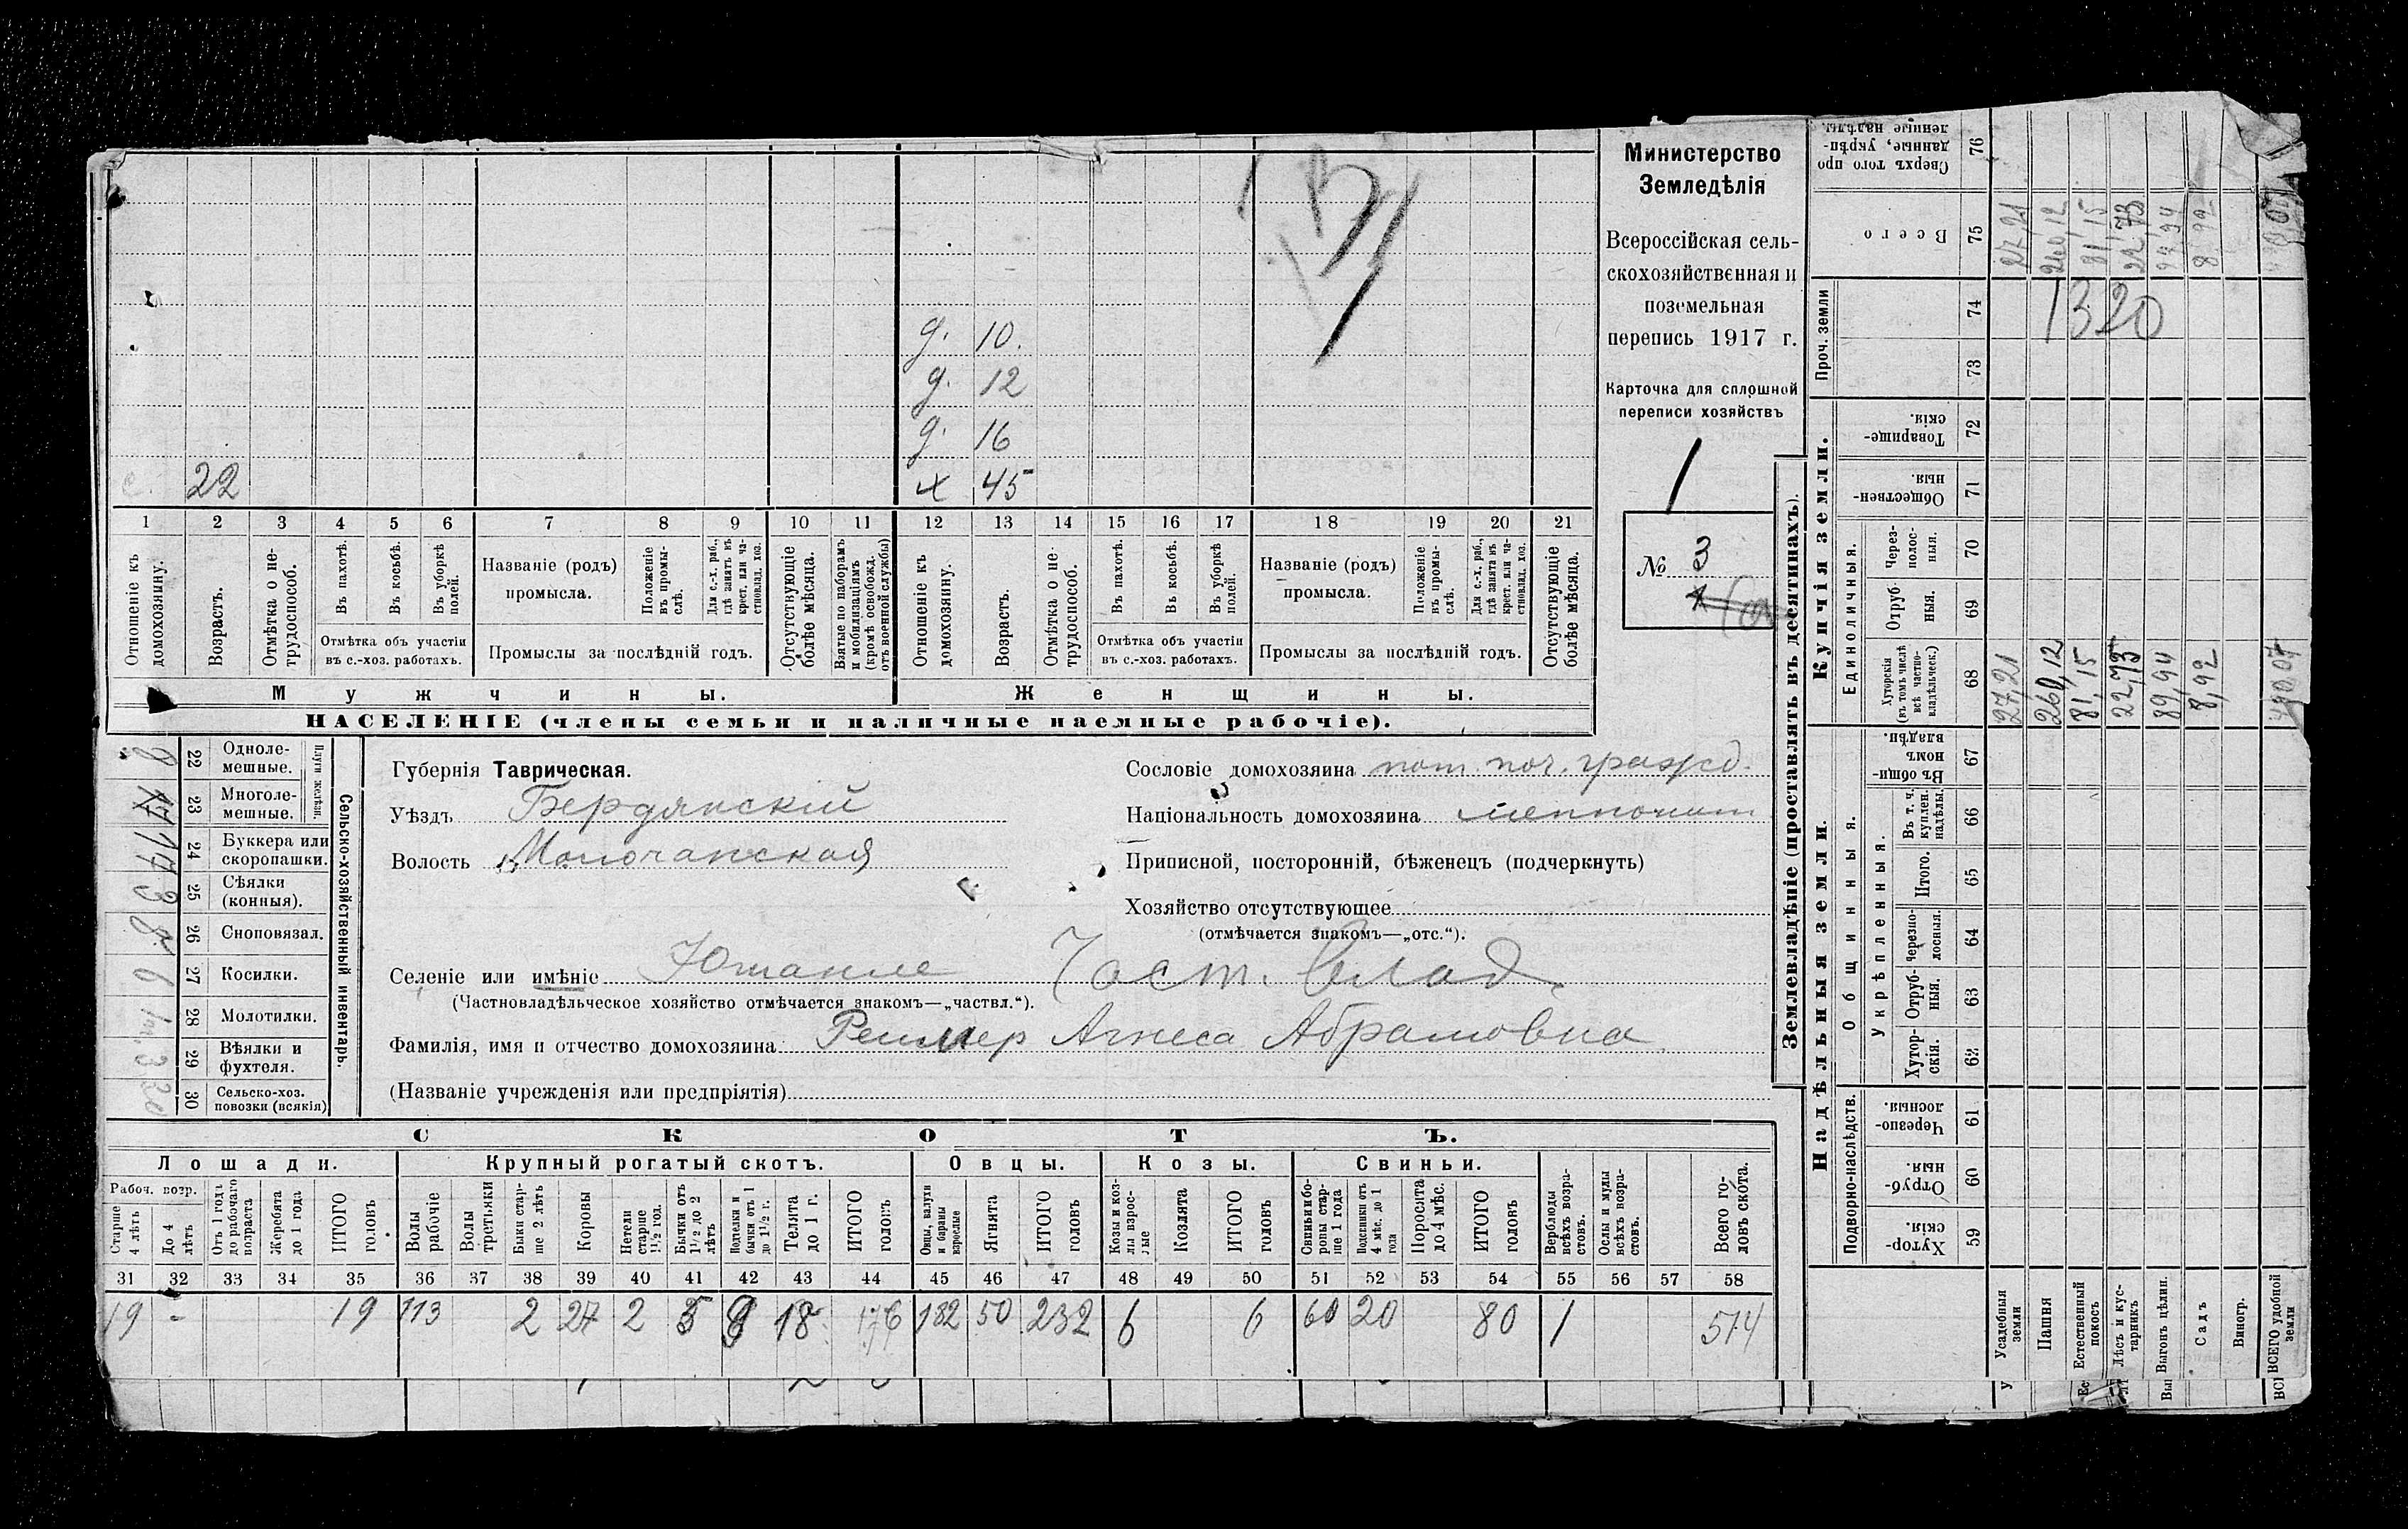 Министерство
Земледѣлія
Всероссійская сель-
скохозяйственная и
поземельная
перепись 1917 г.
Карточка для сплошной
переписи хозяйствъ
1
№ 3
д. 10.
д. 12
д. 16
22
ж 45
1 2 3 4 5 6 7 8 9 10 11 12 13 14 15 16 17 18 19 20 21
Отношеніе къ домохозяину.
Возрастъ.
Отмѣтка о не-трудоспособ.
Въ пахотѣ.
Въ косьбѣ.
Въ уборкѣ полей.
Отмѣтка объ участіи
въ с.-хоз. работахъ.
Названіе (родъ)
промысла.
Положеніе въ промы-слѣ.
Для с.-х. раб., гдѣ занятъ въ крест. или ча-стновлад. хоз.
Промыслы за послѣдній годъ.
Отсутствующіе болѣе мѣсяца.
Взятые по наборамъ и мобилизаціямъ (кромѣ освобожд. отъ военной службы)
Отношеніе къ домохозяину.
Возрастъ.
Отмѣтка о не-трудоспособ.
Въ пахотѣ.
Въ косьбѣ.
Въ уборкѣ полей.
Отмѣтка объ участіи
въ с.-хоз. работахъ.
Названіе (родъ)
промысла.
Положеніе въ промы-слѣ.
Для с.-х. раб., гдѣ занята въ крест. или ча-стновлад. хоз.
Промыслы за послѣдній годъ.
Отсутствующіе болѣе мѣсяца.
Мужчины.
Женщины.
НАСЕЛЕНІЕ (члены семьи и наличные наемные рабочіе).
Сельско-хозяйственный инвентарь.
Плуги желѣзн.
22 Одноле-мешные.
23 Многоле-мешные.
24 Буккера или скоропашки.
25 Сѣялки (конныя).
26 Сноповязал.
27 Косилки. 6
28 Молотилки.
29 Вѣялки и фухтеля. 3
30 Сельско-хоз. повозки (всякія)
Губернія Таврическая.
Уѣздъ Бердянскій
Волость Молочанская
Сословіе домохозяина пот. поч. гражд.
Національность домохозяина меннонит
Приписной, посторонній, бѣженецъ (подчеркнуть)
Хозяйство отсутствующее
(отмѣчается знакомъ—„отс.“).
Селеніе или имѣніе Юшанле Част. Влад.
(Частновладѣльческое хозяйство отмѣчается знакомъ—„частвл.“).
Фамилія, имя и отчество домохозяина Реимер Агнеса Абрамовна
(Названіе учрежденія или предпріятія)
СКОТЪ.
Лошади.
Крупный рогатый скотъ.
Овцы.
Козы.
Свиньи.
Рабоч. возр.
Старше 4 лѣтъ
До 4 лѣтъ
Отъ 1 года до рабочаго возраста
Жеребята до 1 года
ИТОГО головъ
Волы рабочіе
Волы третьяки
Быки стар-ше 2 лѣтъ
Коровы
Нетели старше 1½ год.
Бычки отъ 1½ до 2 лѣтъ
Подтелки и бычки отъ 1 до 1½ г.
Телята до 1 г.
ИТОГО головъ
Овцы, валухи и бараны взрослые
Ягнята
ИТОГО головъ
Козы и коз-лы взрос-лые
Козлята
ИТОГО головъ
Свиньи и бо-ровы стар-ше 1 года
Подсвинки отъ 4 мѣс. до 1 года
Поросята до 4 мѣс.
ИТОГО головъ
Верблюды всѣхъ возра-стовъ.
Ослы и мулы всѣхъ возра-стовъ.
Всего го-ловъ скота.
31 32 33 34 35 36 37 38 39 40 41 42 43 44 45 46 47 48 49 50 51 52 53 54 55 56 57 58
19 - 19 113 2 27 2 5 18 176 182 50 232 6 6 60 20 80 1 514
Землевладѣніе (проставлять въ десятинахъ).
Надѣльныя земли.
Купчія земли.
Проч. земли
Подворно-наслѣдств.
Общинныя.
Укрѣпленныя.
Единоличныя.
59 Хутор-скія.
60 Отруб-ныя.
61 Черезпо-лосныя.
62 Хутор-скія.
63 Отруб-ныя.
64 Черезпо-лосныя.
65 Итого.
66 Въ т. ч. куплен. надѣлы.
67 Въ общи-номъ владѣн.
68 Хуторскія (въ томъ числѣ всѣ частно-владѣльческ.)
69 Отруб-ныя.
70 Через-полос-ныя.
71 Обществен-ныя.
72 Товарище-скія.
73
74
75 Всего
76 Сверхъ того про-данные, укрѣп-ленные надѣлы.
Усадебныя земли 27,21 27,21
Пашня 260,12 260,12
Естественный покосъ 81,15 81,15
Лѣсъ и кус-тарникъ 22,73 22,73
Выгонъ цѣлин. 89,94
Садъ 8,92 8,92
Виногр.
ВСЕГО удобной земли
1320